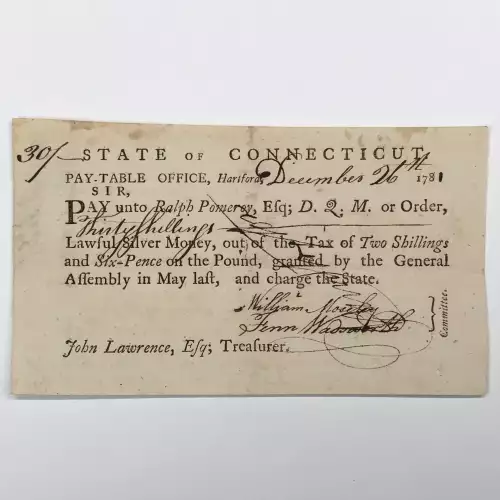 30/— STATE OF CONNECTICUT,
PAY-TABLE OFFICE, Hartford, December 26th 1781
SIR,
PAY unto Ralph Pomeroy, Esq; D. Q. M. or Order,
Thirty Shillings
Lawful Silver Money, out of the Tax of Two Shillings
and Six-Pence on the Pound, granted by the General
Assembly in May last, and charge the State.
William Moseley
Fenn Wadsworth
Committee.
John Lawrence, Esq; Treasurer.